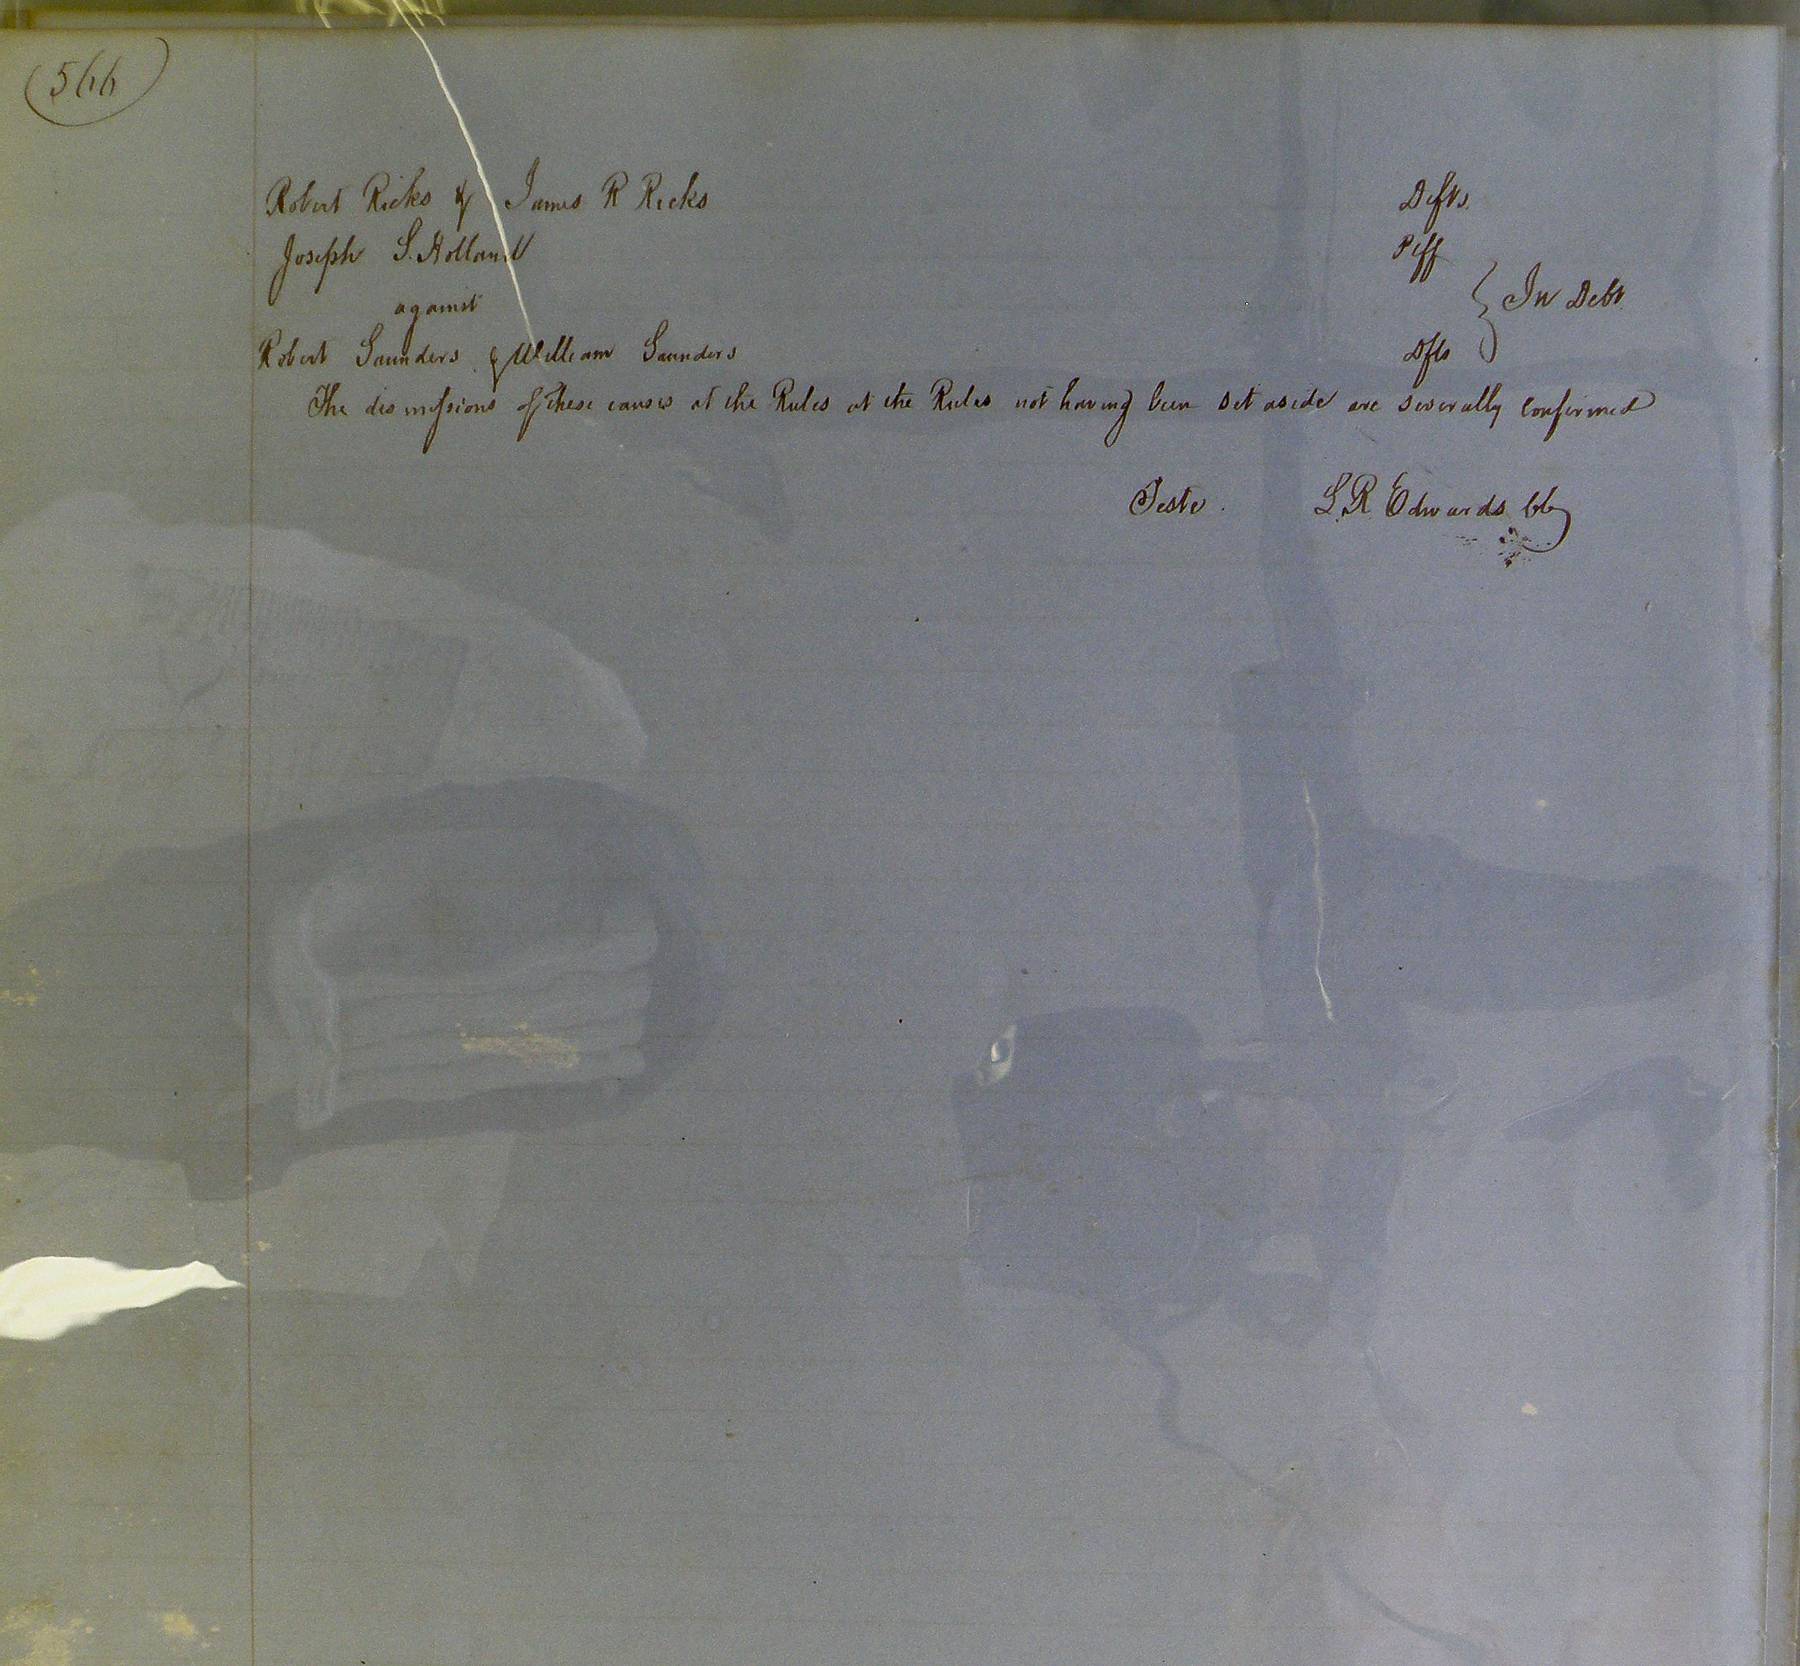 566
Robert Ricks & James R Ricks Defts.
Joseph S. Holland Plff
against } In Debt
Robert Saunders & William Saunders Dfts
The dismissions of these causes at the Rules at the Rules not having been set aside are severally confirmed
Teste. L. R. Edwards Clk